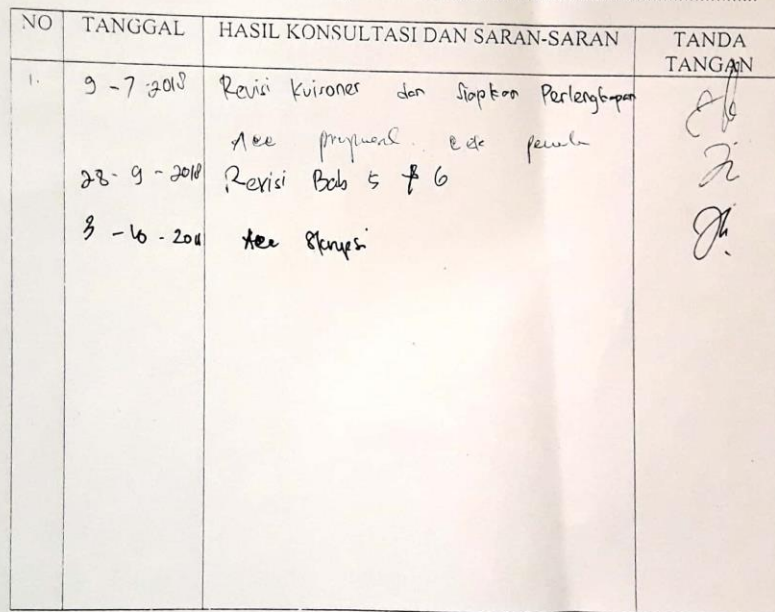 NO TANGGAL HASIL KONSULTASI DAN SARAN-SARAN TANDA TANGAN
1. 9-7-2018 Revisi Kuisoner dan Siapkan Perlengkapan
Acc proposal
28-9-2018 Revisi Bab 5 & 6
3-10-2018 Acc Skripsi